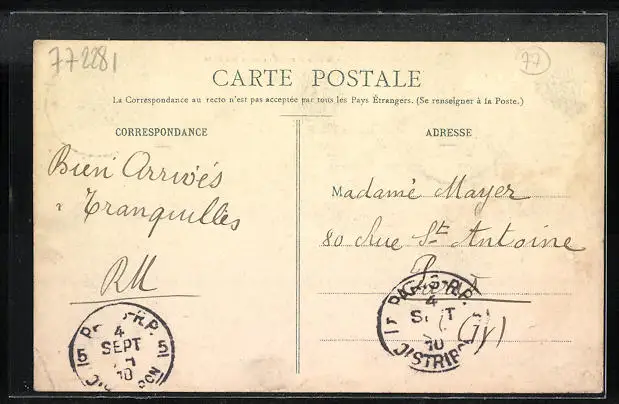 77228 1
77
CARTE POSTALE
La Correspondance au recto n'est pas acceptée par tous les Pays Étrangers. (Se renseigner à la Poste.)
CORRESPONDANCE
Bien Arrivés
Tranquilles
RM
5 4 5
SEPT
10
ADRESSE
Madame Mayer
80 Rue St Antoine
4
10
DISTRIBON